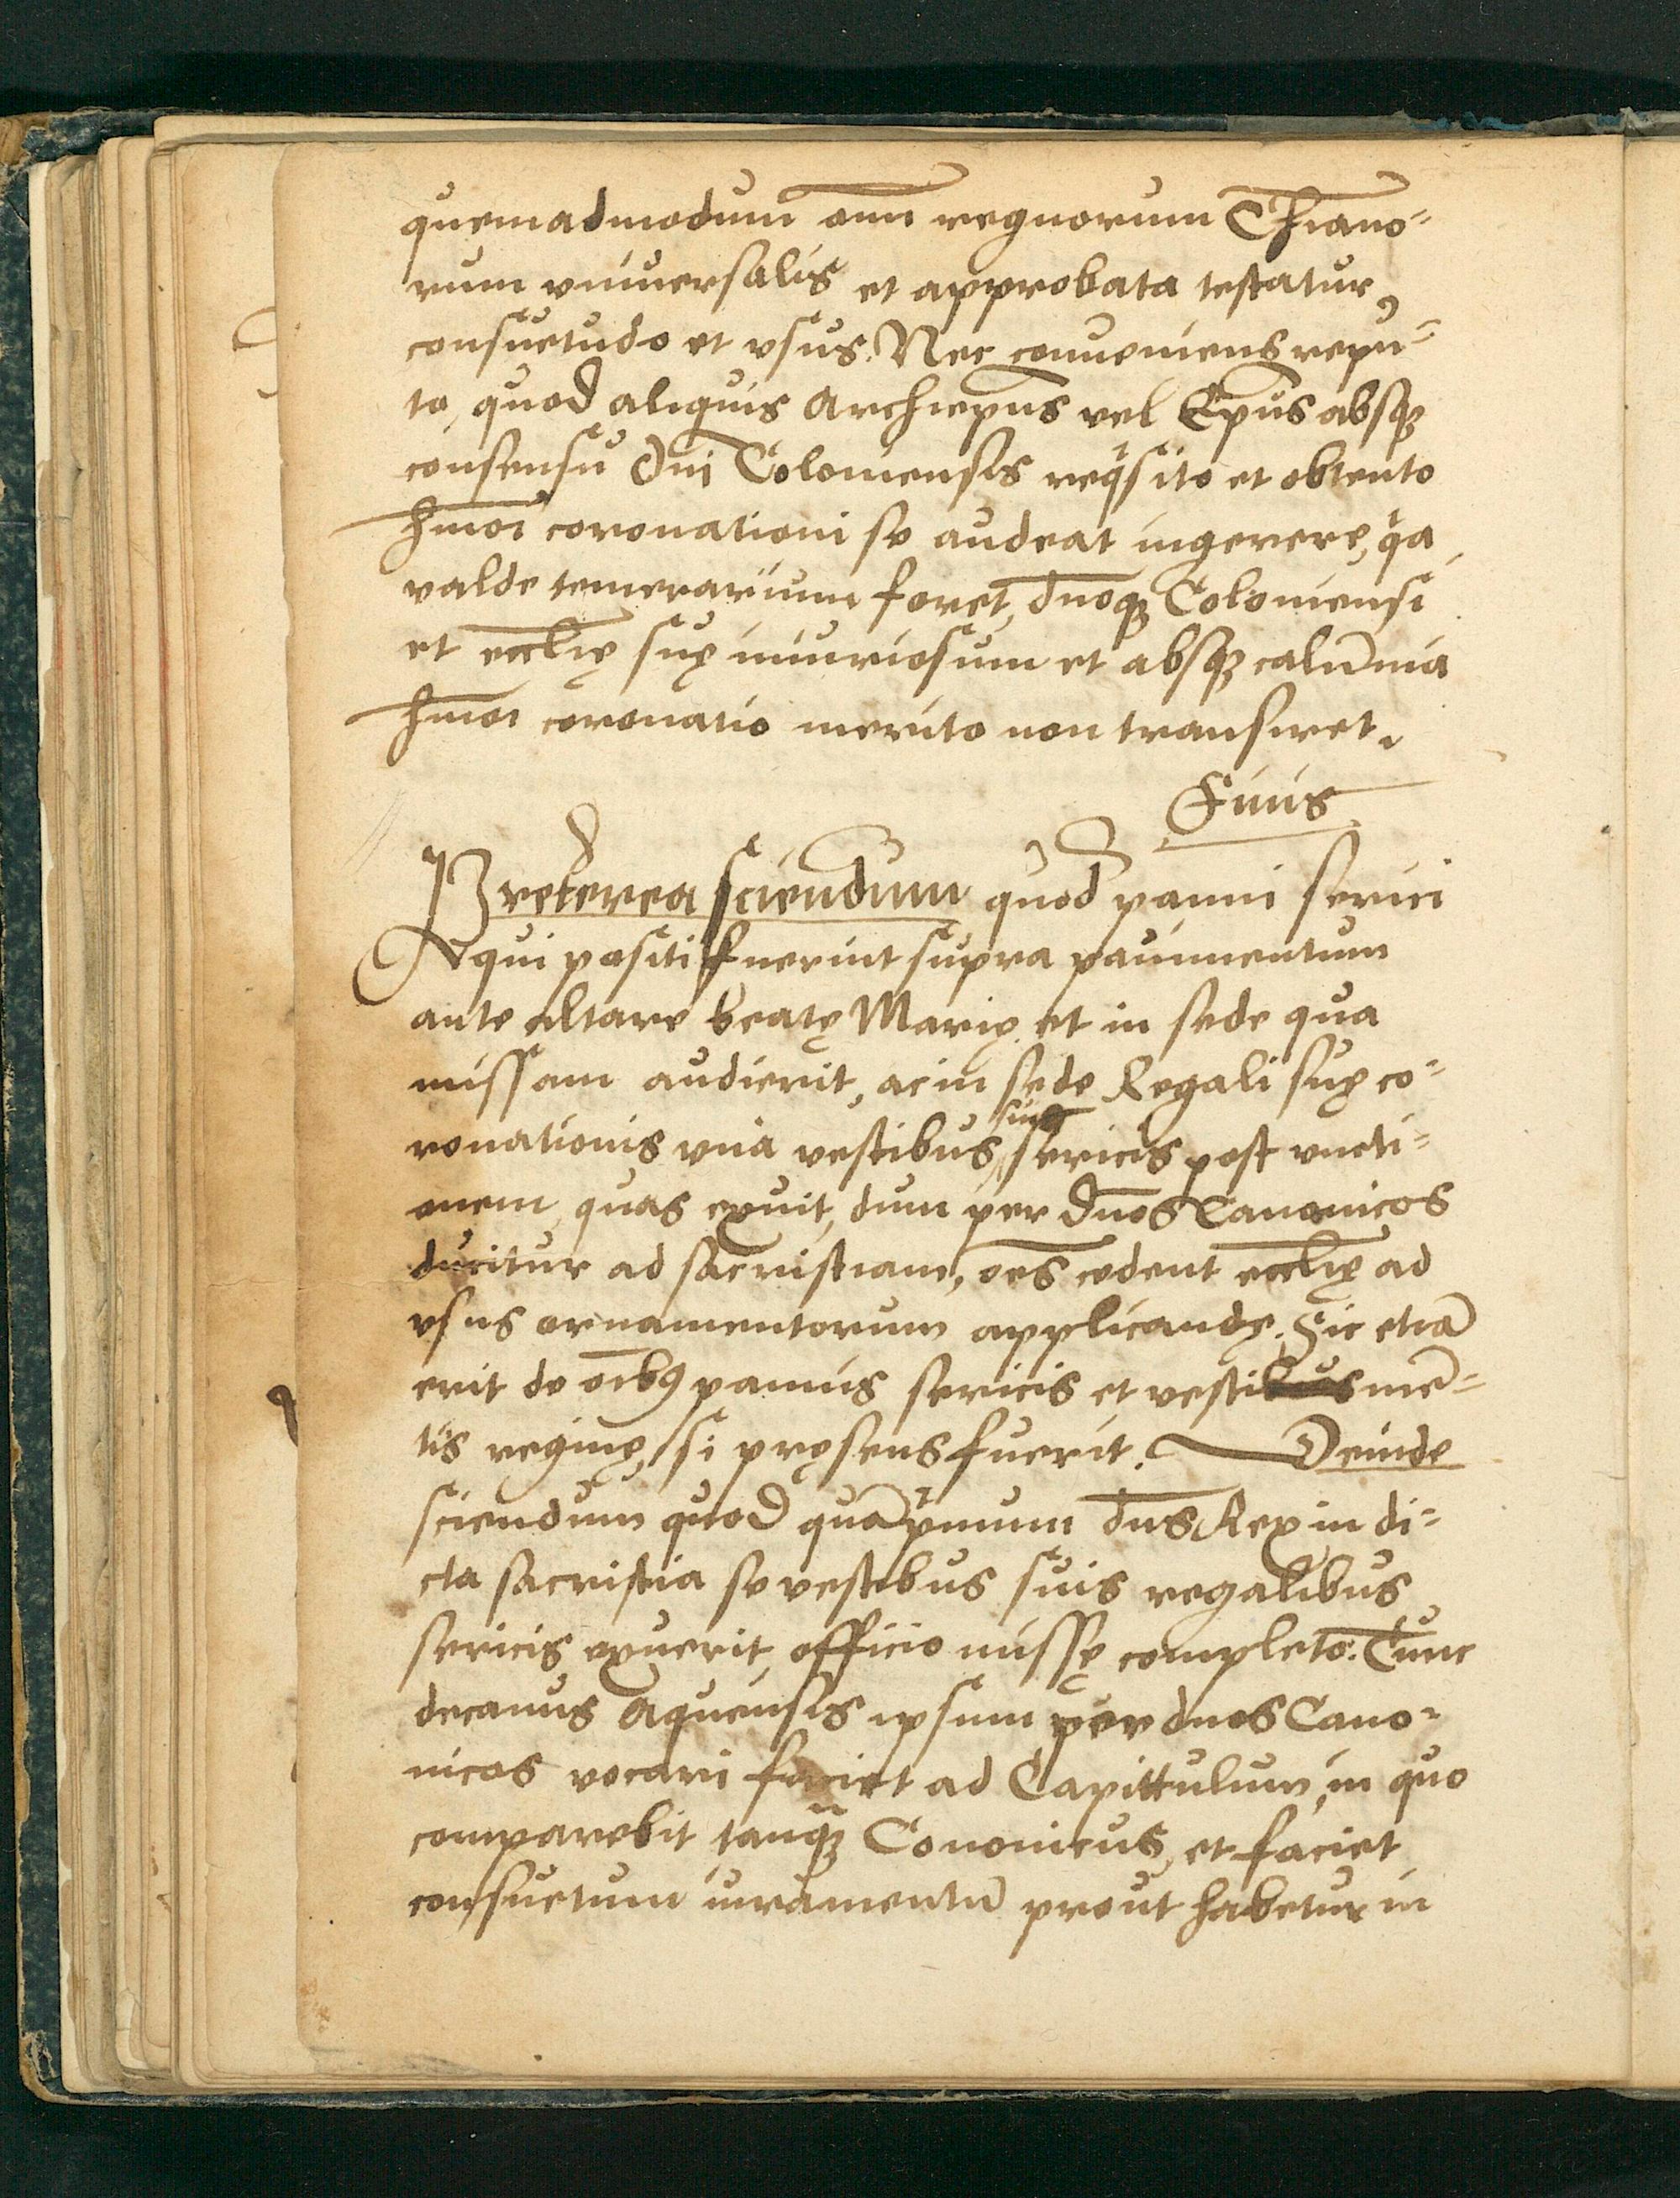 quemadmodum om̄ regnorum Chiano-
rum vniuersalis et approbata testatur
consuetudo et vsus. Nec conueniens repu-
to, quod aliquis Archiepus vel Epus absq;
consensu Dni Coloniensis reqsito et obtento
hmoi coronationi se audeat ingerere, qa
valde temerarium foret, dnoq; Coloniensi
et ecclię suę iniuriosum et absq; calūnia
hmoi coronatio merito non transiret.
Finis
Preterea sciendum quod panni serici
qui positi fuerint supra pauimentum
ante altare beatę Marię et in sede qua
missam audierit, ac in sede Regali suę co-
ronationis vna vestibus suis sericis post vncti-
onem, quas exuit, dum per dnos Canonicos
ducitur ad sacristiam, oēs cedent ecclię ad
vsus ornamentorum applicandę. Sic etiā
erit de oibꝰ pannis sericis et vestibus mē-
tis reginę, si pręsens fuerit. Deinde
sciendum quod quā pmum dns Rex in di-
cta sacristia se vestibus suis regalibus
sericis exuerit, officio missę completo. Tunc
decanus Aquensis ipsum per duos Cano-
nicos vocari faciet ad Capittulum, in quo
comparebit tanq; Cononicus, et faciet
consuetum iuramentū prout habetur in